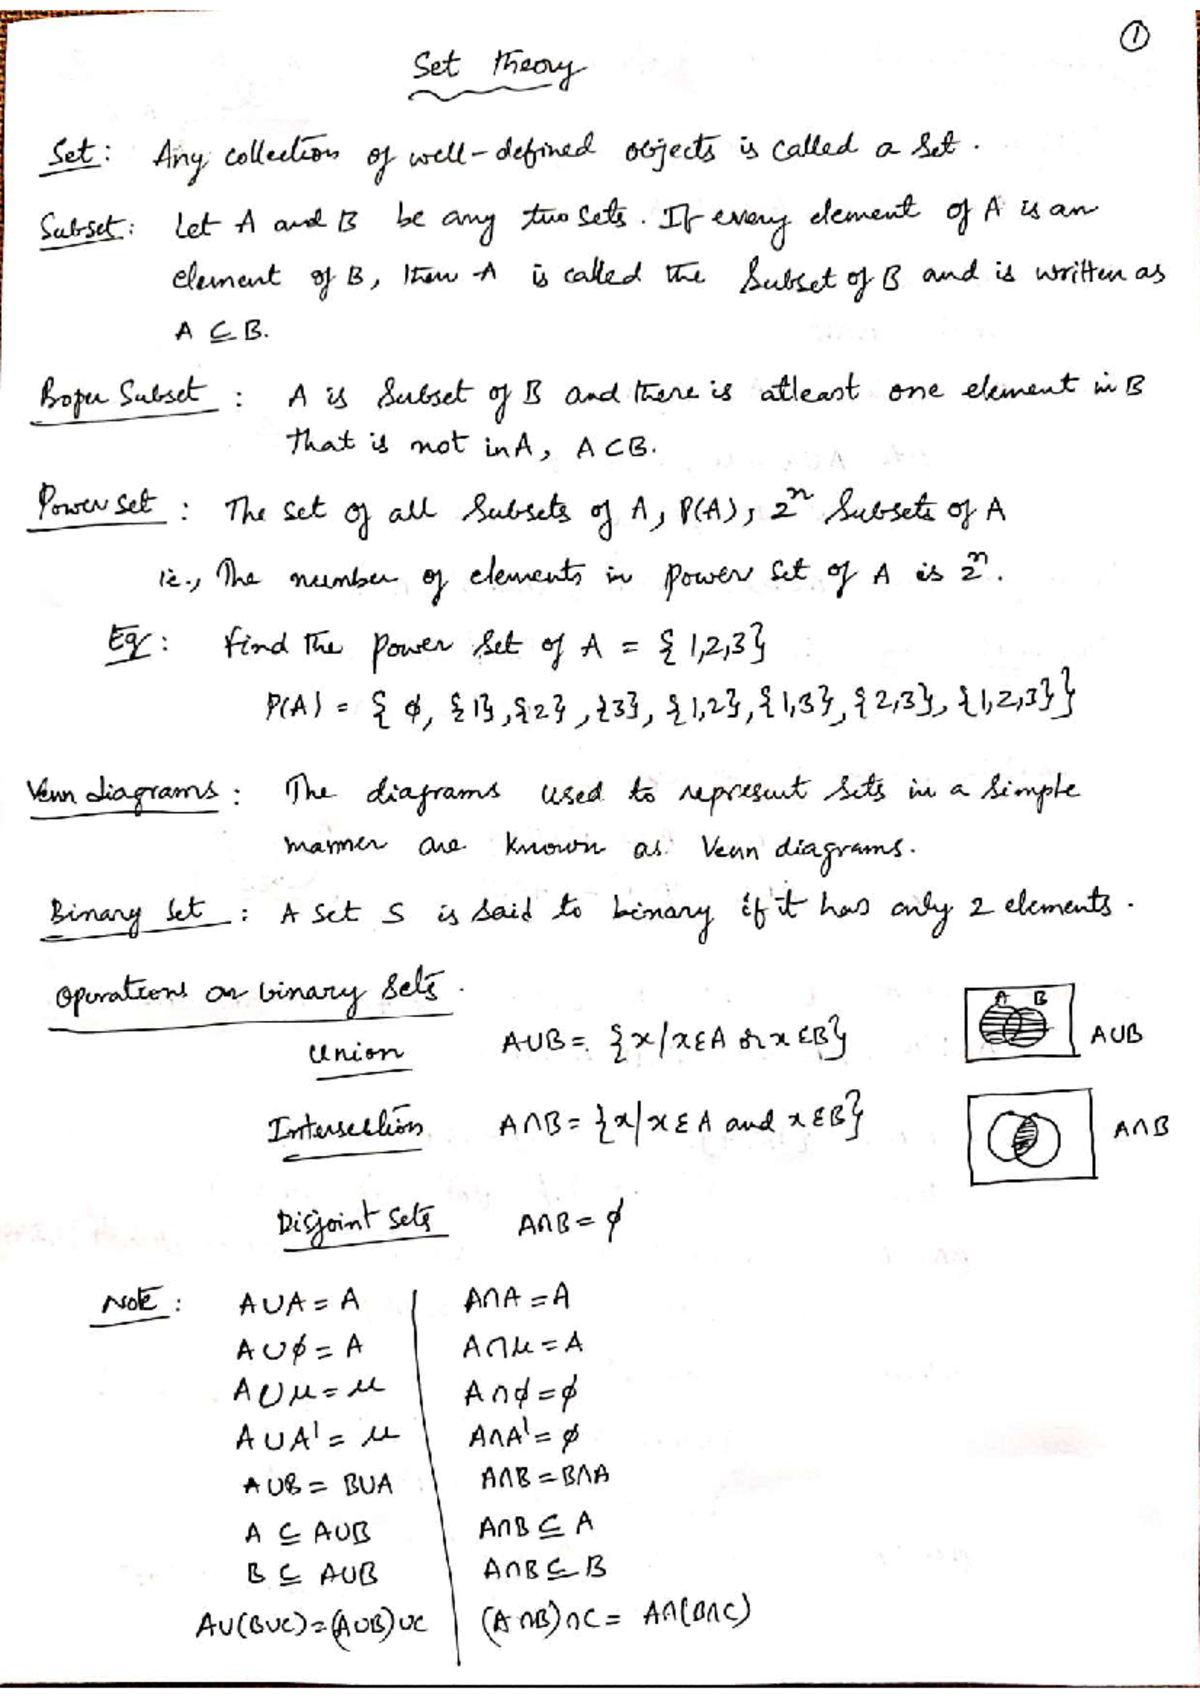 ①
Set theory
Set : Any collection of well-defined objects is called a set.
Subset : Let A and B be any two sets. If every element of A is an
element of B, then A is called the Subset of B and is written as
A ⊆ B.
Proper Subset : A is Subset of B and there is atleast one element in B
that is not in A, A ⊂ B.
Power set : The set of all Subsets of A, P(A), 2ⁿ Subsets of A
ie., The number of elements in power set of A is 2ⁿ.
Eg : Find the power set of A = {1,2,3}
P(A) = { ϕ, {1}, {2}, {3}, {1,2}, {1,3}, {2,3}, {1,2,3}}
Venn diagrams : The diagrams used to represent sets in a simple
manner are known as Venn diagrams.
Binary set : A set S is said to binary if it has only 2 elements.
Operations on binary sets.
Union A∪B = {x/x∈A or x∈B}
A B
A∪B
Intersection A∩B = {x/x∈A and x∈B}
A∩B
Disjoint sets A∩B = ϕ
Note : A∪A = A | A∩A = A
A∪ϕ = A | A∩μ = A
A∪μ = μ | A∩ϕ = ϕ
A∪A' = μ | A∩A' = ϕ
A∪B = B∪A | A∩B = B∩A
A ⊆ A∪B | A∩B ⊆ A
B ⊆ A∪B | A∩B ⊆ B
A∪(B∪C) = (A∪B)∪C | (A∩B)∩C = A∩(B∩C)